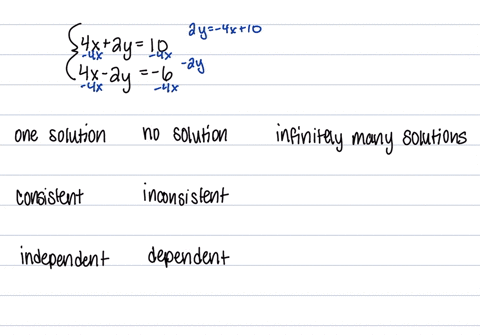 4x+2y=10 2y=-4x+10
-4x -4x
4x-2y=-6 -2y
-4x -4x
one solution no solution infinitely many solutions
consistent inconsistent
independent dependent